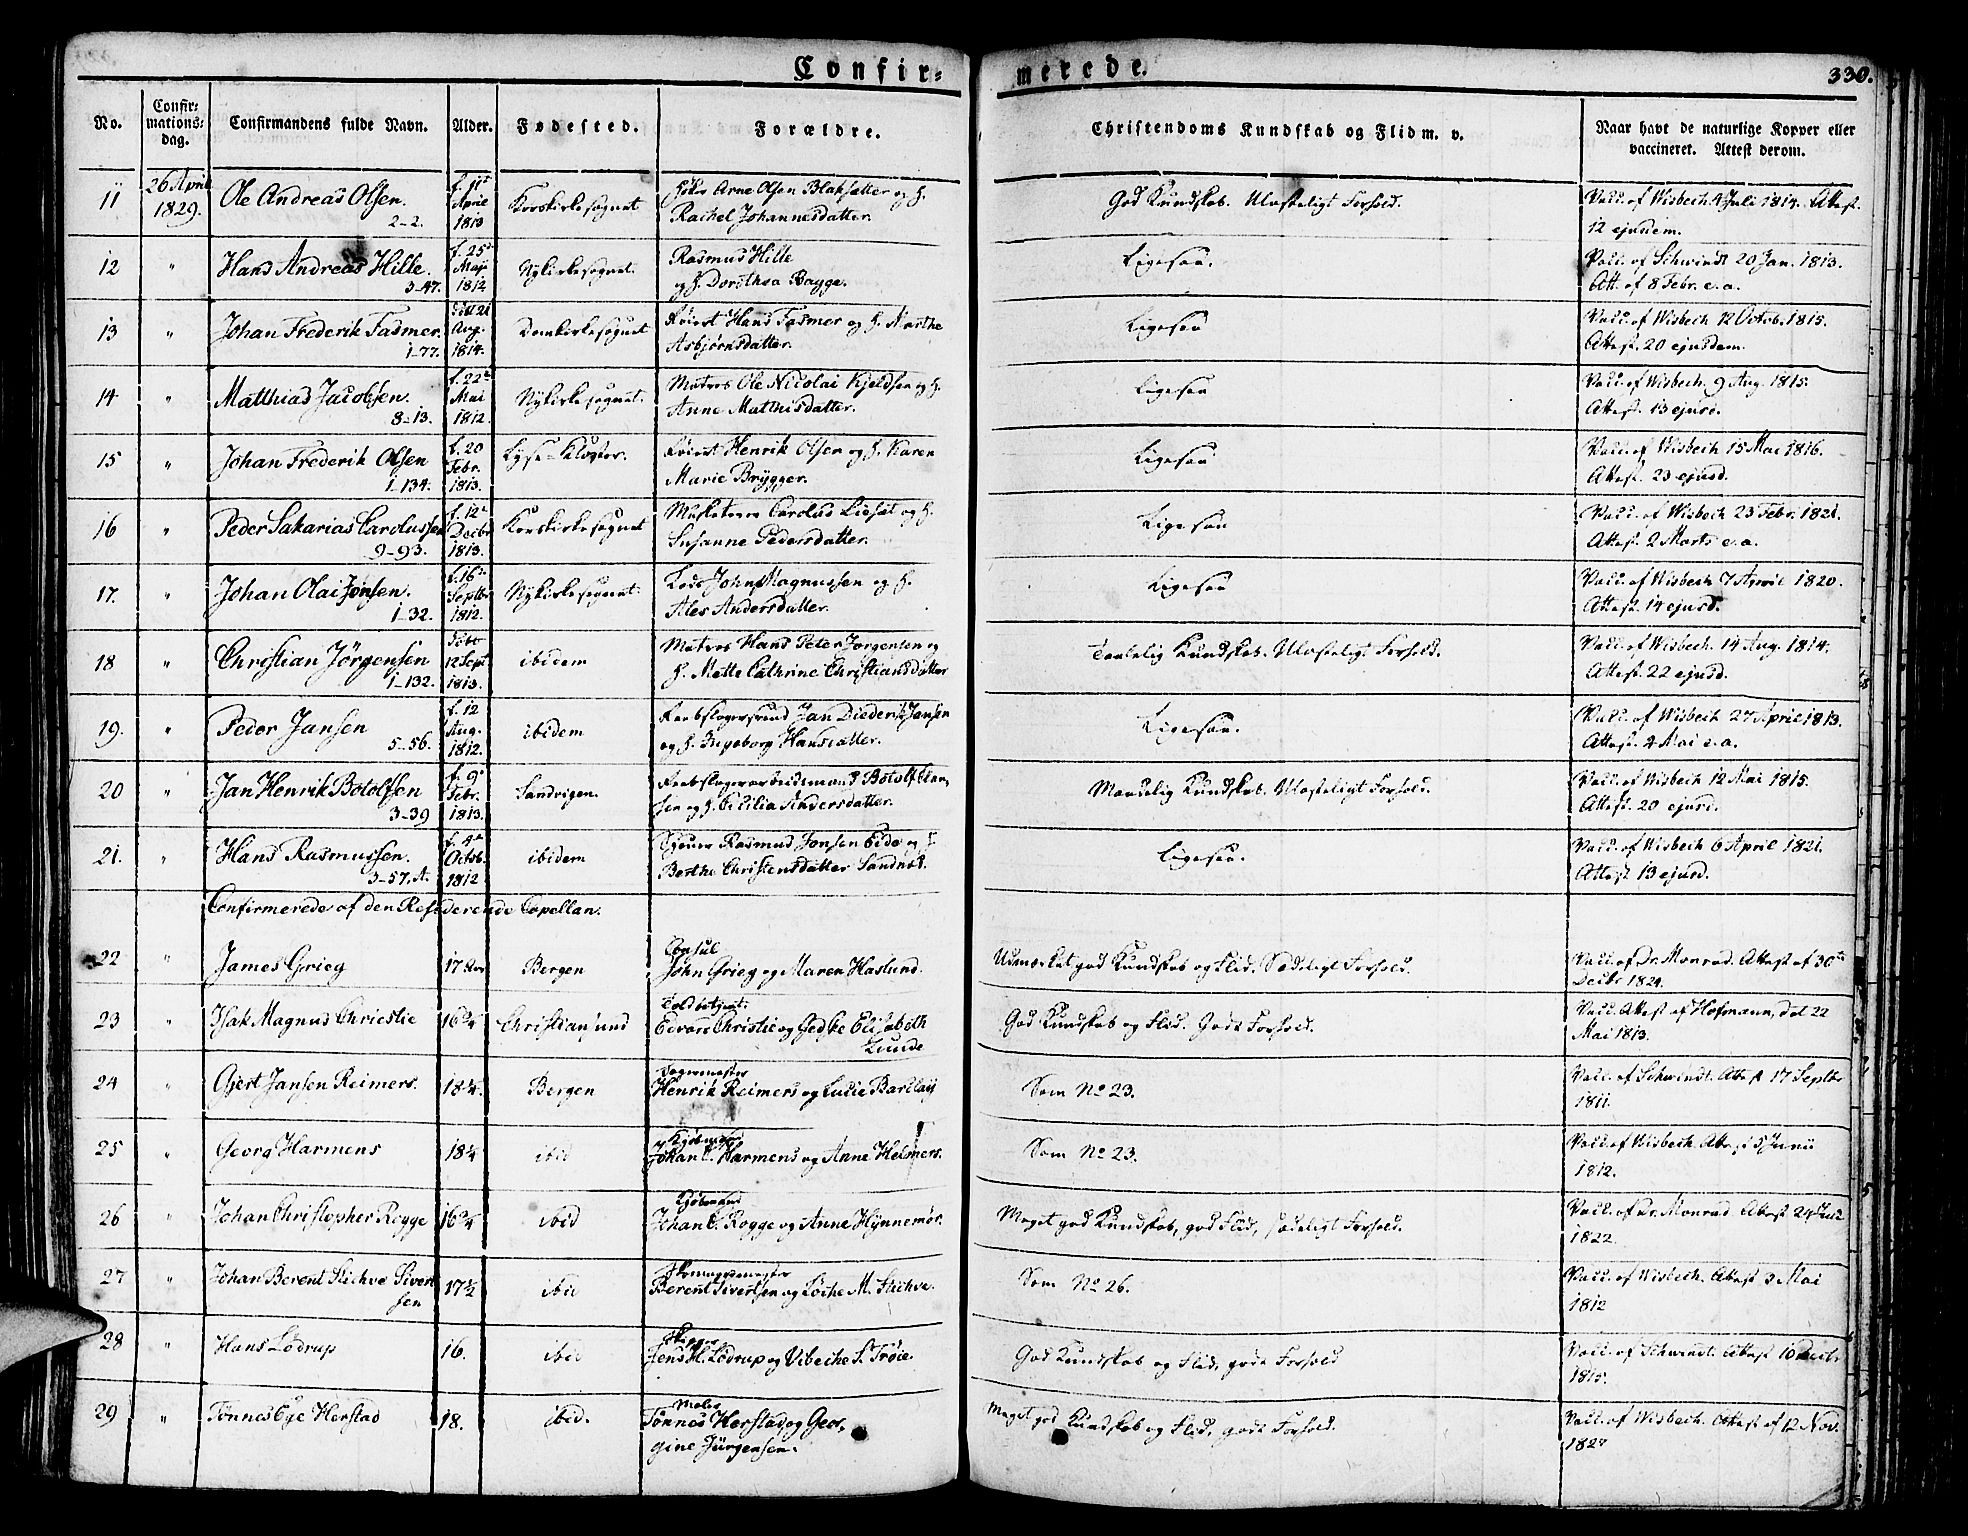 Confir-
merede.
330.
No.
Confir-
mations-
dag.
Confirmandens fulde Navn.
Alder.
Fødested.
Forældre.
Christendoms Kundskab og Flid m. v.
Naar havt de naturlige Kopper eller
vaccineret. Attest derom.
11
26 April
1829.
Ole Andreas Olsen.
2-2.
f. 11te
April
1813
Korskirkesognet
Arne Olsen Blaksætter og H.
Rachel Johannesdatter.
God Kundskab. Ulasteligt Forhold.
Vacc. af Wisbech 4 Juli 1814. Attest.
12 ejusdem.
12
"
Hans Andreas Hille.
3-47.
f. 25de
Maji
1812
Nykirkesognet.
Rasmus Hille
og H. Dorothea Bagge.
Ligesaa.
Vacc. af Schwindt 20 Jan. 1813.
Att. af 8 Febr. e. a.
13
"
Johan Frederik Fasmer.
1-77.
født 21
Aug.
1814.
Domkirkesognet
Hans Fasmer og H. Marthe
Asbjørnsdatter.
Ligesaa
Vacc. af Wisbech 12 Octob. 1815.
Attest. 20 ejusdem.
14
"
Matthias Jacobsen.
8-13.
f. 22de
Mai
1812.
Nykirkesognet.
Matros Ole Nicolai Kjeldsen og H.
Anne Mathisdatter.
Ligesaa
Vacc. af Wisbech. 9 Aug. 1815.
Attest. 13 ejusd.
15
"
Johan Frederik Olsen
1-134.
f. 20
Febr.
1813.
Lyse-Kloster.
Henrik Olsen og H. Karen
Marie Brygger.
Ligesaa
Vacc. af Wisbech 15 Mai 1816.
Attest. 23 ejusd.
16
"
Peder Sakarias Carolussen
9-93.
f. 12te
Decbr
1813.
Korskirkesognet
Musketeer Carolus og H.
Susanne Pedersdatter.
Ligesaa
Vacc. af Wisbech 23 Febr. 1821.
Attest. 2 Marts e. a.
17.
"
Johan Olai Jonsen.
1-32.
f. 16de
Septbr
1812.
Nykirkesognet.
Lods John Magnussen og H.
Ales Andersdatter.
Ligesaa
Vacc. af Wisbech 7 April 1820.
Attest. 14 ejusd.
18
"
Christian Jörgensen
1-132.
12 Sept.
1813.
ibidem
Matros Hans Peter Jorgensen og
H. Mette Cathrine Christiansdatter
Taalelig Kundskab. Ulasteligt Forhold.
Vacc. af Wisbech. 14 Aug. 1814.
Attest. 22 ejusd.
19.
"
Peder Jansen
5-56.
f. 12
Aug.
1812.
ibidem
Reebslagersvend Jan Diederik Jansen
og H. Ingeborg Hansdatter.
Ligesaa.
Vacc. af Wisbech 27 April 1813.
Attest. 4 Mai e. a.
20
"
Jan Henrik Botolfsen
3-39
f. 9de
Febr.
1813.
Sandvigen.
Reebslagerarbeidsmand Botolf
sen og H. Cicilia Andersdatter.
Maadelig Kundskab. Ulasteligt Forhold.
Vacc. af Wisbech 12 Mai 1815.
Attest. 20 ejusd.
21.
"
Hans Rasmussen.
3-57. A.
f. 4de
Octob.
1812
ibidem
Rasmus Jonsen Eide og H.
Berthe Christensdatter Sandnes.
Ligesaa.
Vacc. af Wisbech 6 April 1821.
Attest 13 ejusd.
Confirmerede af den Residerende Capellan.
22
"
James Grieg
17 Aar
Bergen
Consul
John Grieg og Maren Haslund.
Udmærket god Kundskab og Flid. Sædeligt Forhold.
Vacc. af Dr. Monrad. Attest af 30te
Decbr 1824.
23
"
Isak Magnus Chriestie
16 3/4
Christiansund
Toldbetjent
Edvard Christie og Gedske Elisabeth
Lunde
God Kundskab og Flid. Godt Forhold.
Vacc. Attest af Hofmann, dat 22
Mai 1813.
24
"
Gjert Jansen Reimers.
18 1/4.
Bergen
Henrik Reimers og Lucie Barclay
Som No 23.
Vacc. af Schwindt. Attest 17 Septbr
1811.
25
"
Georg Harmens
18 1/4
ibid
Kjøbmand
Johan C. Harmens og Anne Helmers.
Som No 23.
Vacc. af Wisbech. 5 Junii
1812.
26
"
Johan Christopher Rogge
16 3/4
ibid
Kjøbmand
Johan C. Rogge og Anne Hynnemør.
Meget god Kundskab, god Flid, sædeligt Forhold.
Vacc. af Dr. Monrad Attest 24 Juli
1822.
27
"
Johan Berent Stichve Sivert
sen
17 1/2
ibid
Skomagermester
Berent Sivertsen og M. Stichve.
Som No 26.
Vacc. af Wisbech. Attest 3 Mai
1812
28
"
Hans Lödrup
16.
ibid
Skipper
Jens H. Lödrup og Vibeche S. Trøie.
God Kundskab og Flid, godt Forhold
Vacc. af Schwindt. Attest 10 Decbr
1815.
29
"
Tönnes Eye Herstad
18.
ibid.
Maler
Tönnes Herstad og Geor-
gine Jürgensen.
Meget god Kundskab og Flid, godt Forhold.
Vacc. af Wisbech. Attest af 12 Nov.